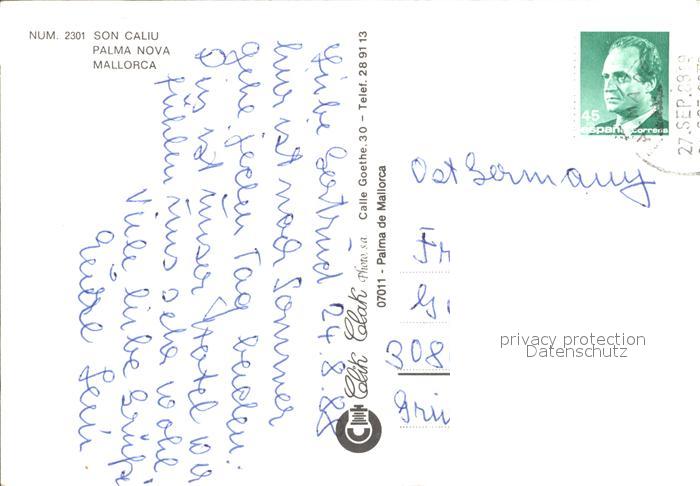 NUM. 2301 SON CALIU
PALMA NOVA
MALLORCA
Liebe Gertrud 24.8.88
hier ist noch Sommer
gehe jeden Tag baden.
Das ist unser Hotel wo
fühlen uns sehr wohl
Viele liebe Grüße
Clik Clak Photo s.a. Calle Goethe, 30 - Telef. 28 91 13
07011 - Palma de Mallorca
45
españa correos
27 SEP. 
Ost Germany
Fr
G
308
Grü
privacy protection
Datenschutz